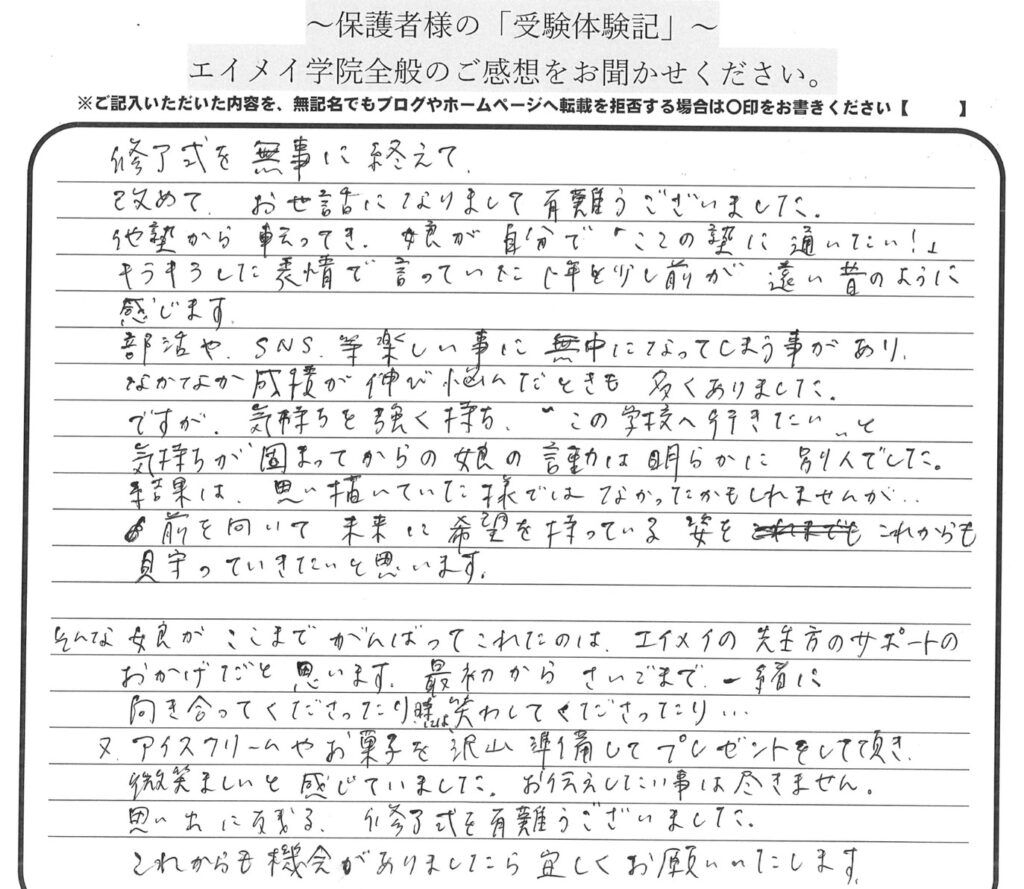 ～保護者様の「受験体験記」～
エイメイ学院全般のご感想をお聞かせください。
※ご記入いただいた内容を、無記名でもブログやホームページへ転載を拒否する場合は〇印をお書きください【　　】
修了式を無事に終えて、
改めて、お世話になりまして有難うございました。
他塾から転ってき、娘が自分で「ここの塾に通いたい！」
キラキラした表情で言っていた1年と少し前が遠い昔のように
感じます。
部活や、SNS、等楽しい事に無中になってしまう事があり、
なかなか成績が伸び悩んだときも多くありました。
ですが、気持ちを強く持ち、“この学校へ行きたい„と
気持ちが固まってからの娘の言動は明らかに別人でした。
結果は、思い描いていた様ではなかったかもしれませんが..
前を向いて未来に希望を持っている姿を これまでも これからも
見守っていきたいと思います。
そんな娘がここまでがんばってこれたのは、エイメイの先生方のサポートの
おかげだと思います。最初からさいごまで、一緒に
向き合ってくださったり時には笑わしてくださったり…
又、アイスクリームやお菓子を沢山準備してプレゼントをして頂き、
微笑ましいと感じていました。お伝えしたい事は尽きません。
思い出に残る、修了式を有難うございました。
これからも機会がありましたら宜しくお願いいたします。